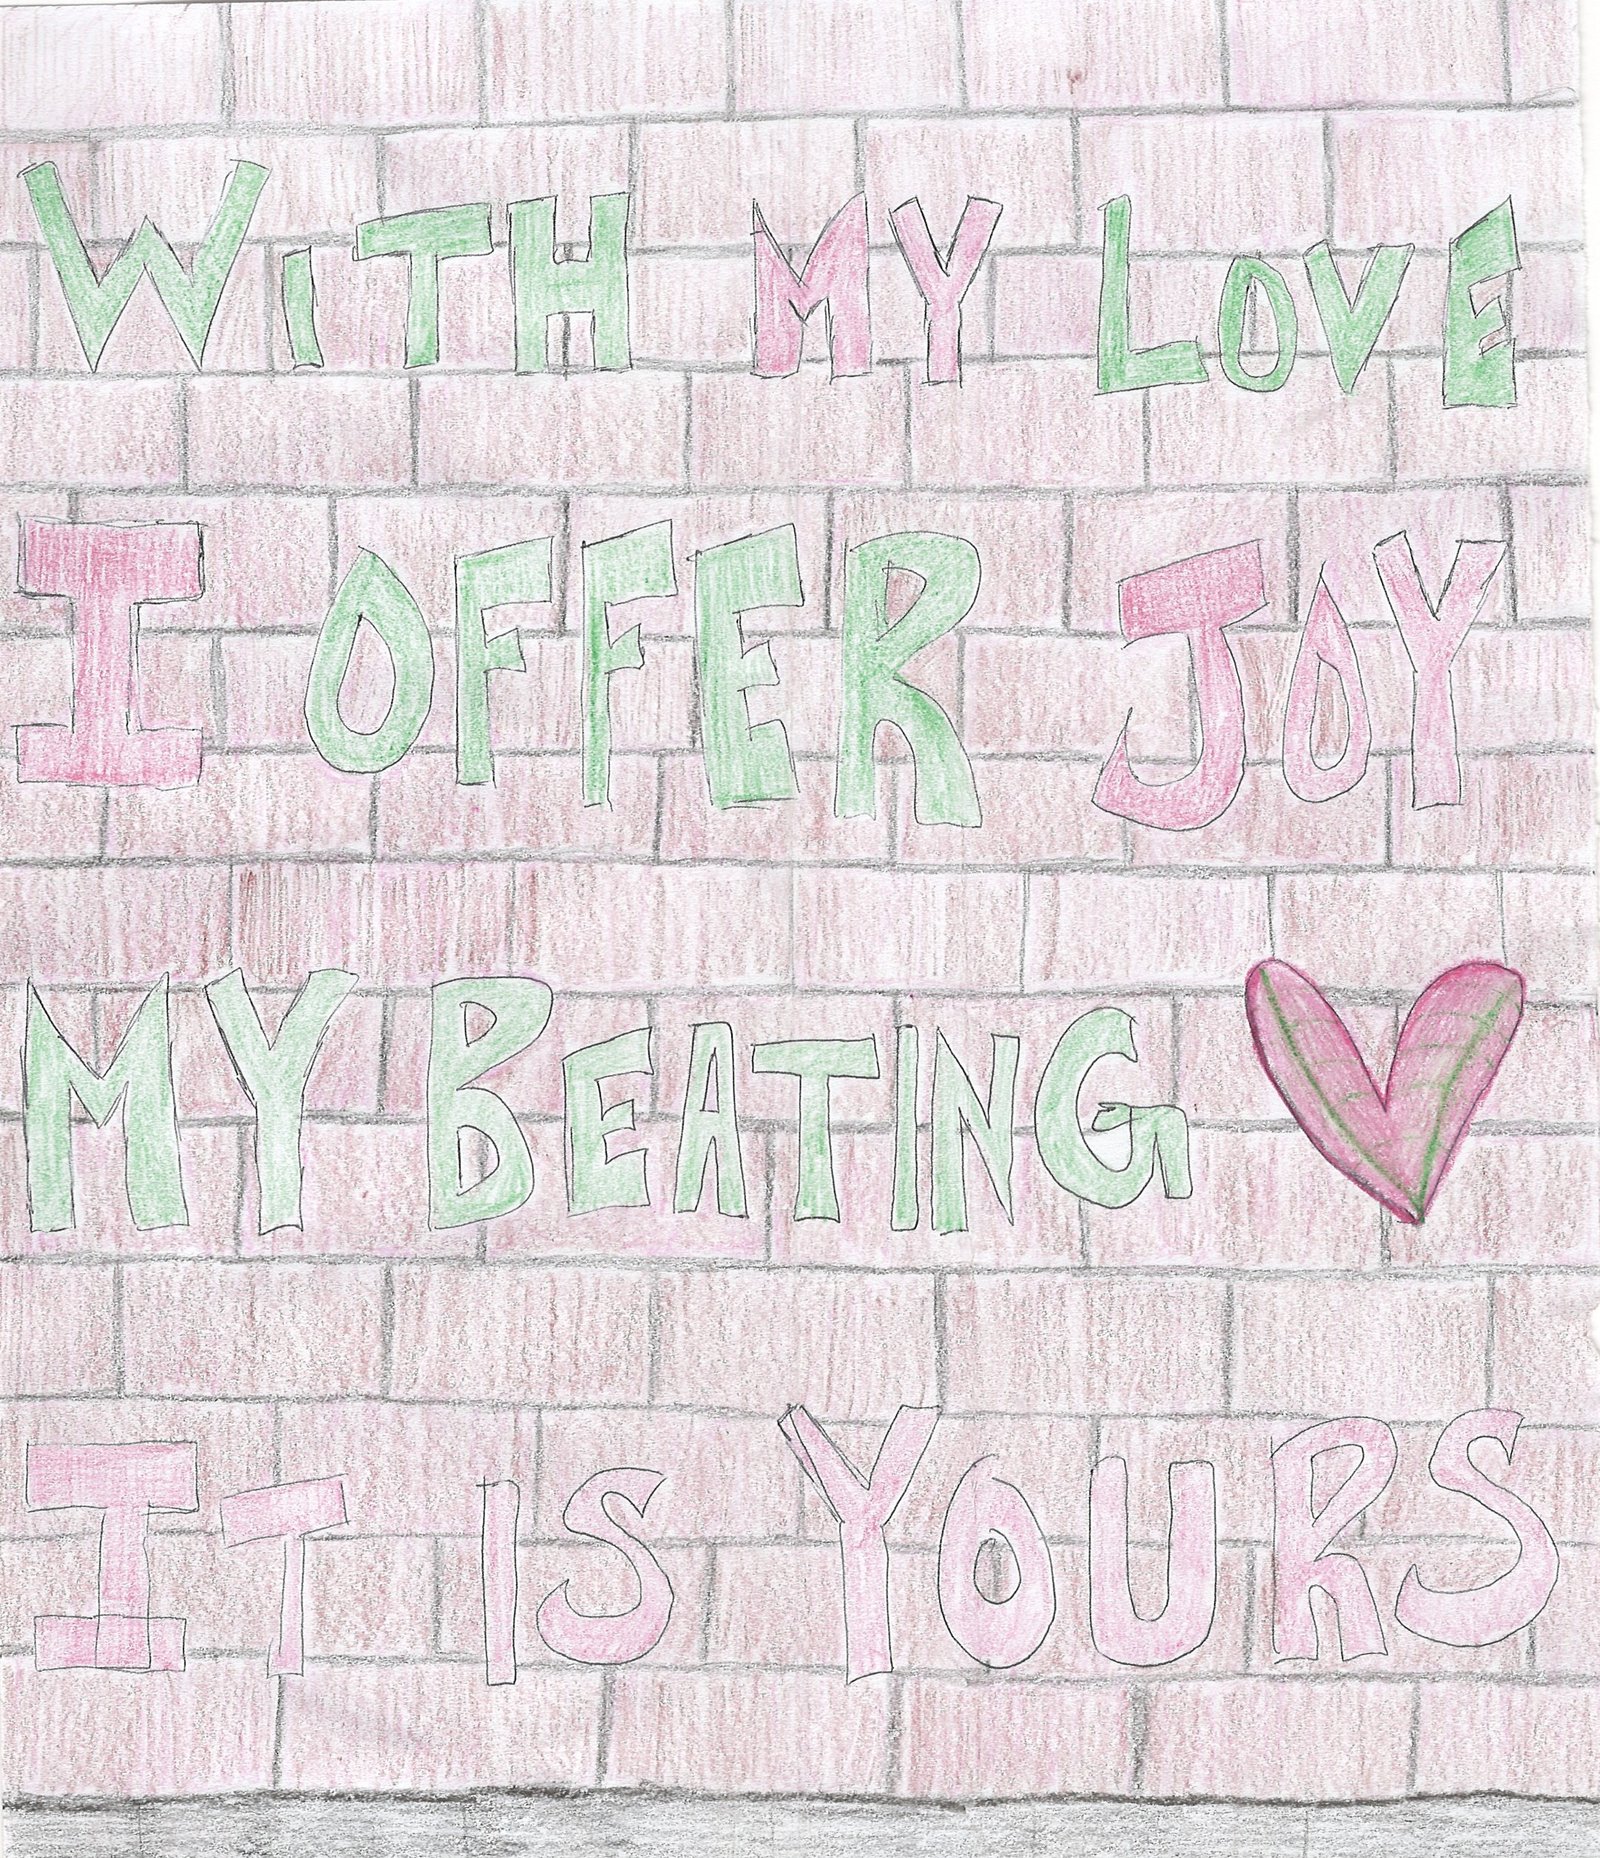 WiTH MY LOVE
I OFFER JOY
MY BEATING
IT IS YOURS